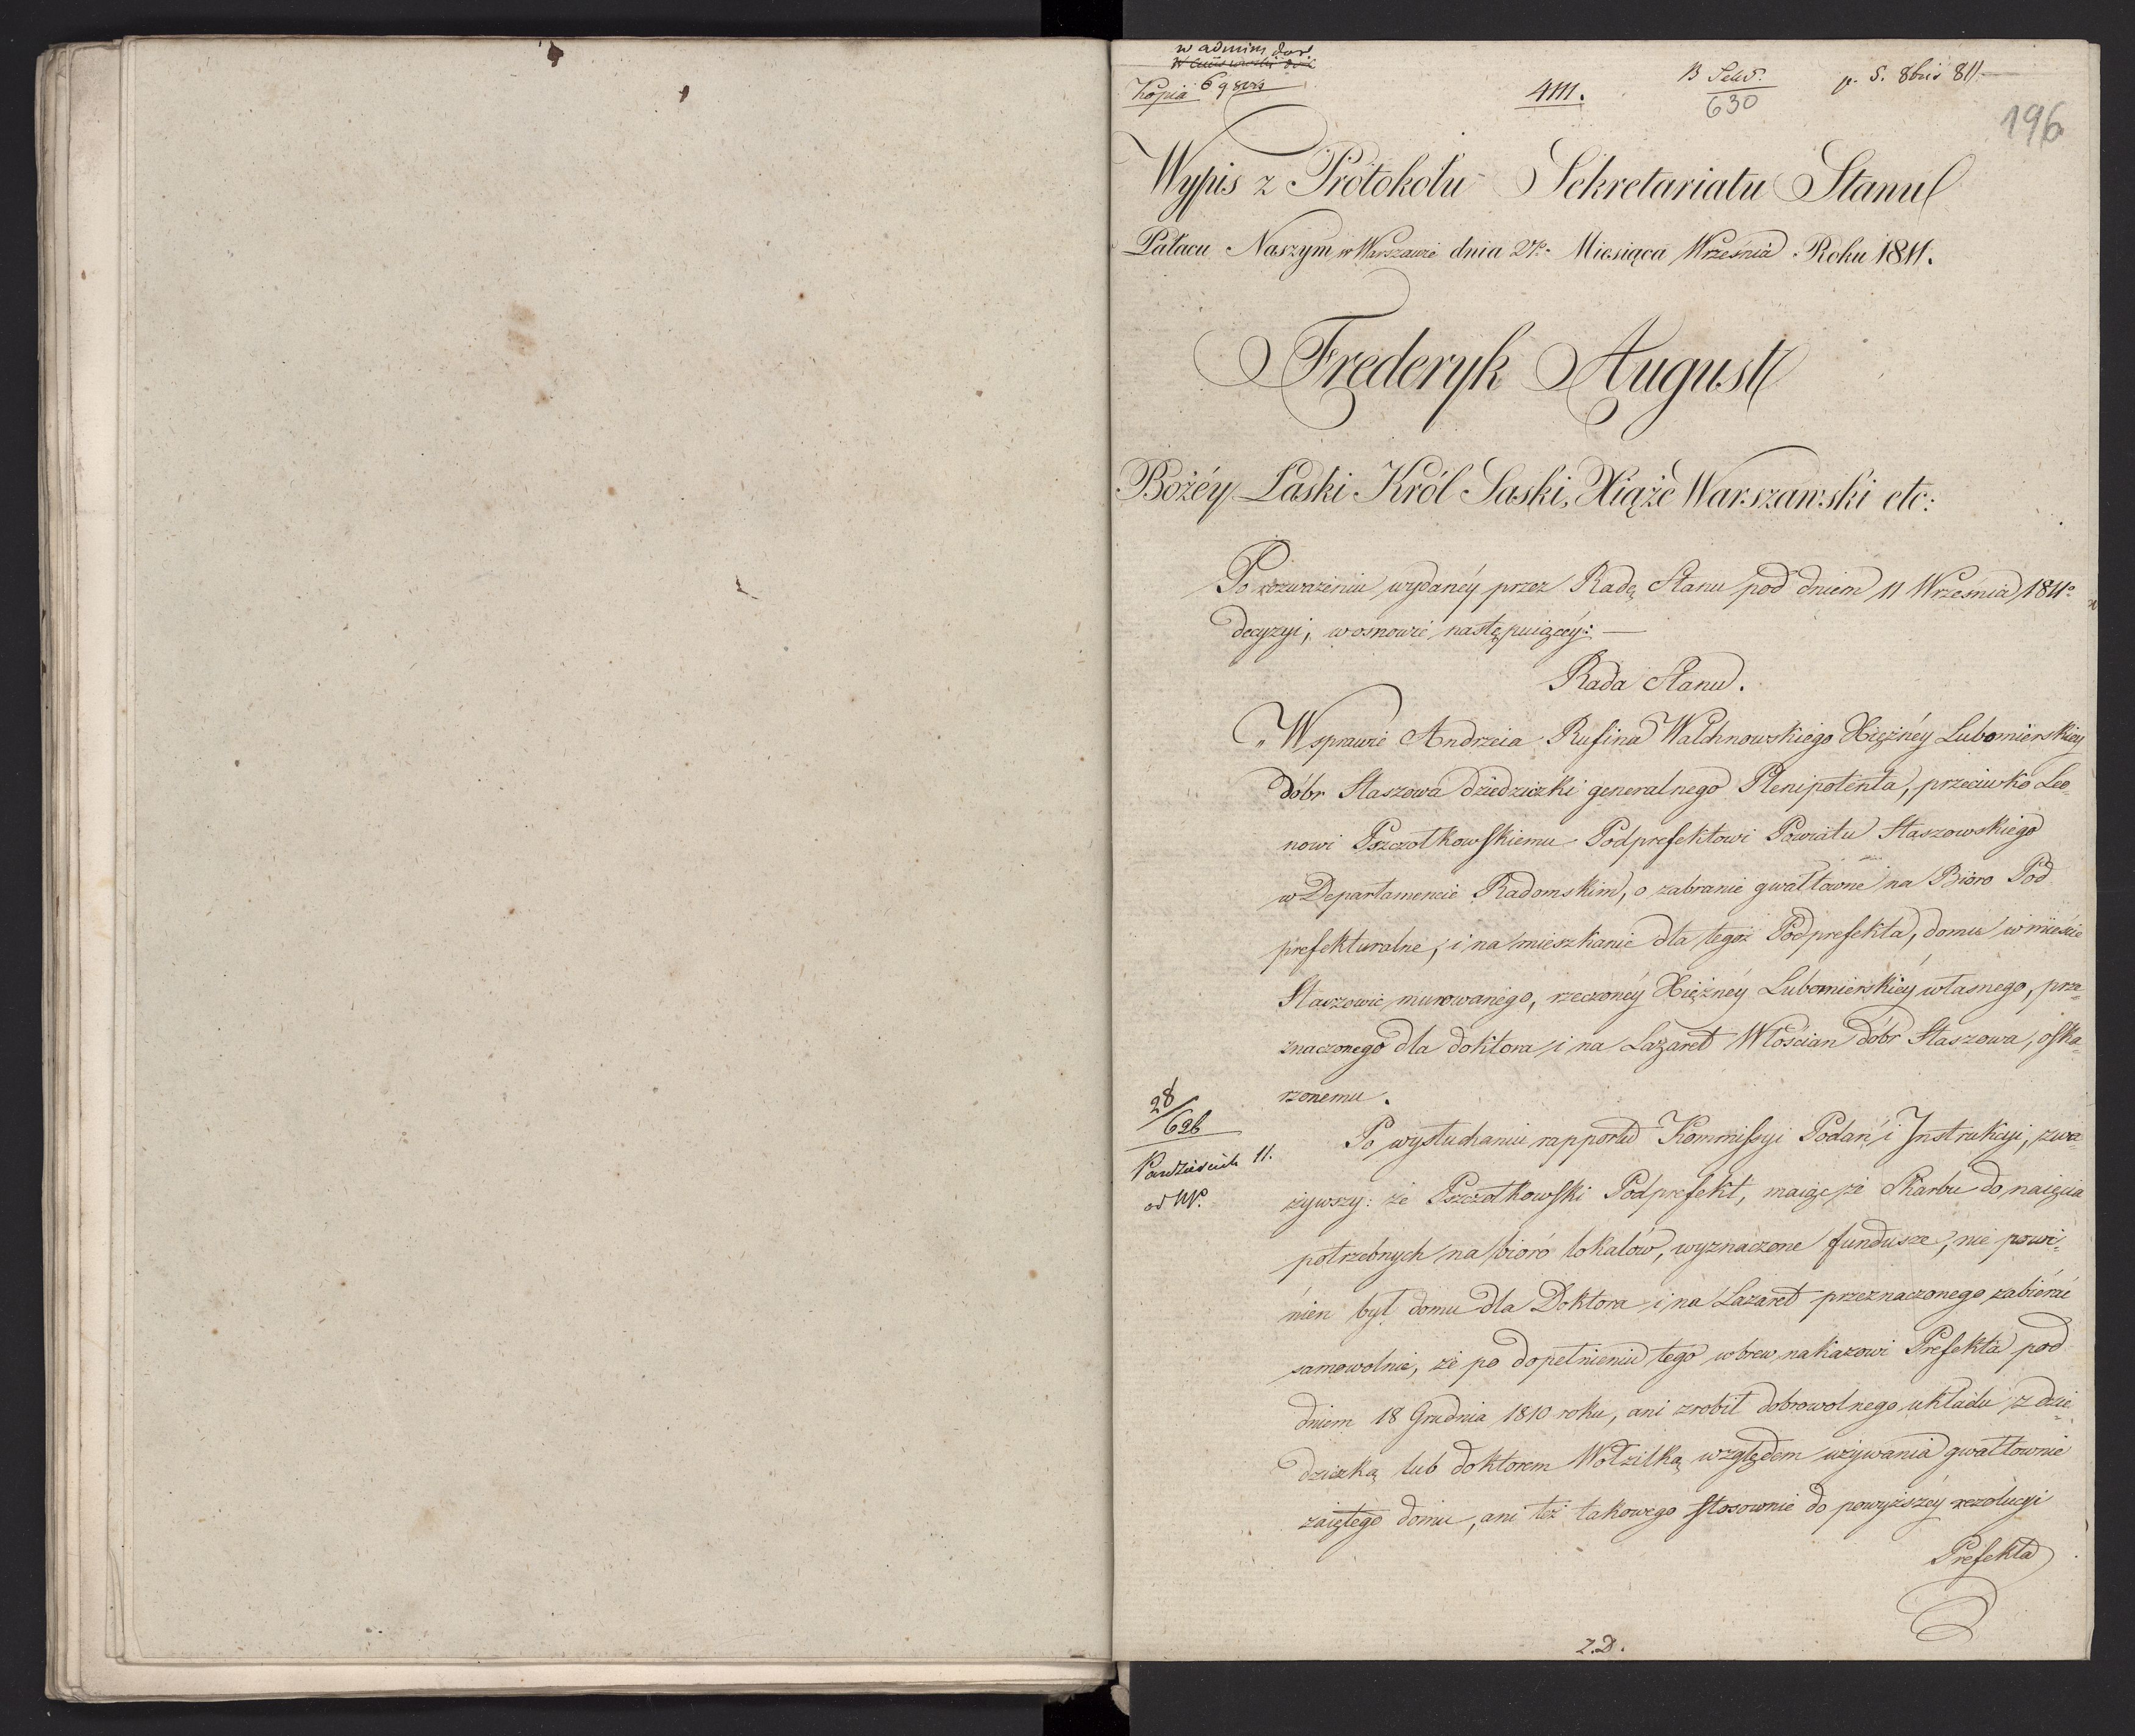 w admin dor
Kopia 6 q
4111.
B Sekr.
630
p. 5. 8bris 811.
196
Wypis z Protokołu Sekretariatu Stanu
Pałacu Naszym w Warszawie dnia 27º Miesiąca Września Roku 1811.
Frederyk August
Bożéy Łaski Król Saski, Xiąże Warszawski etc:
Po rozważeniu wydanéy przez Radę Stanu pod dniem 11 Września 1811º
decyzyi, w osnowie następuiącéy: —
Rada Stanu.
„W sprawie Andrzeia Rufina Walchnowskiego Xiężnéy Lubomierskiey
dóbr Staszowa dziedziczki generalnego Plenipotenta, przeciwko Leo„
nowi Pszczołkowskiemu Podprefektowi Powiatu Staszowskiego
w Departamencie Radomskim, o zabranie gwałtowne na Bióro Pod
prefekturalne, i na mieszkanie dla tegoż Podprefekta, domu w mieście
Staszowie murowanego, rzeczonéy Xiężnéy Lubomierskiéy własnego, prze„
znaczonego dla doktora i na Lazaret Włościan dóbr Staszowa, oska„
rzonemu.
28/626
Październik 11.
od W.
Po wysłuchaniu rapportu Kommissyi Podań i Instrukcyi, zwa„
żywszy: że Pszczołkowski Podprefekt, maiąc ze Skarbu do naięcia
potrzebnych na bióro lokalów, wyznaczone fundusze, nie powi„
nien był domu dla Doktora i na Lazaret przeznaczonego zabierać
samowolnie, że po dopełnieniu tego wbrew nakazowi Prefekta pod
dniem 18 Grudnia 1810 roku, ani zrobił dobrowolnego układu z dzie„
dziczką lub doktorem Wołzilką względem używania gwałtownie
zaiętego domu, ani też takowego stosownie do powyższéy rezolucyi
Prefekta
Z.D.